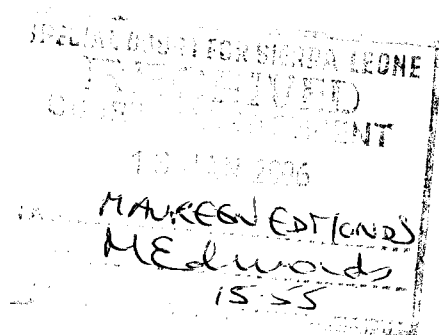 SPECIAL COURT FOR SIERRA LEONE
RECEIVED
COURT MANAGEMENT
JAN 2006
MAUREEN EDMONDS
MEdmonds
15 55